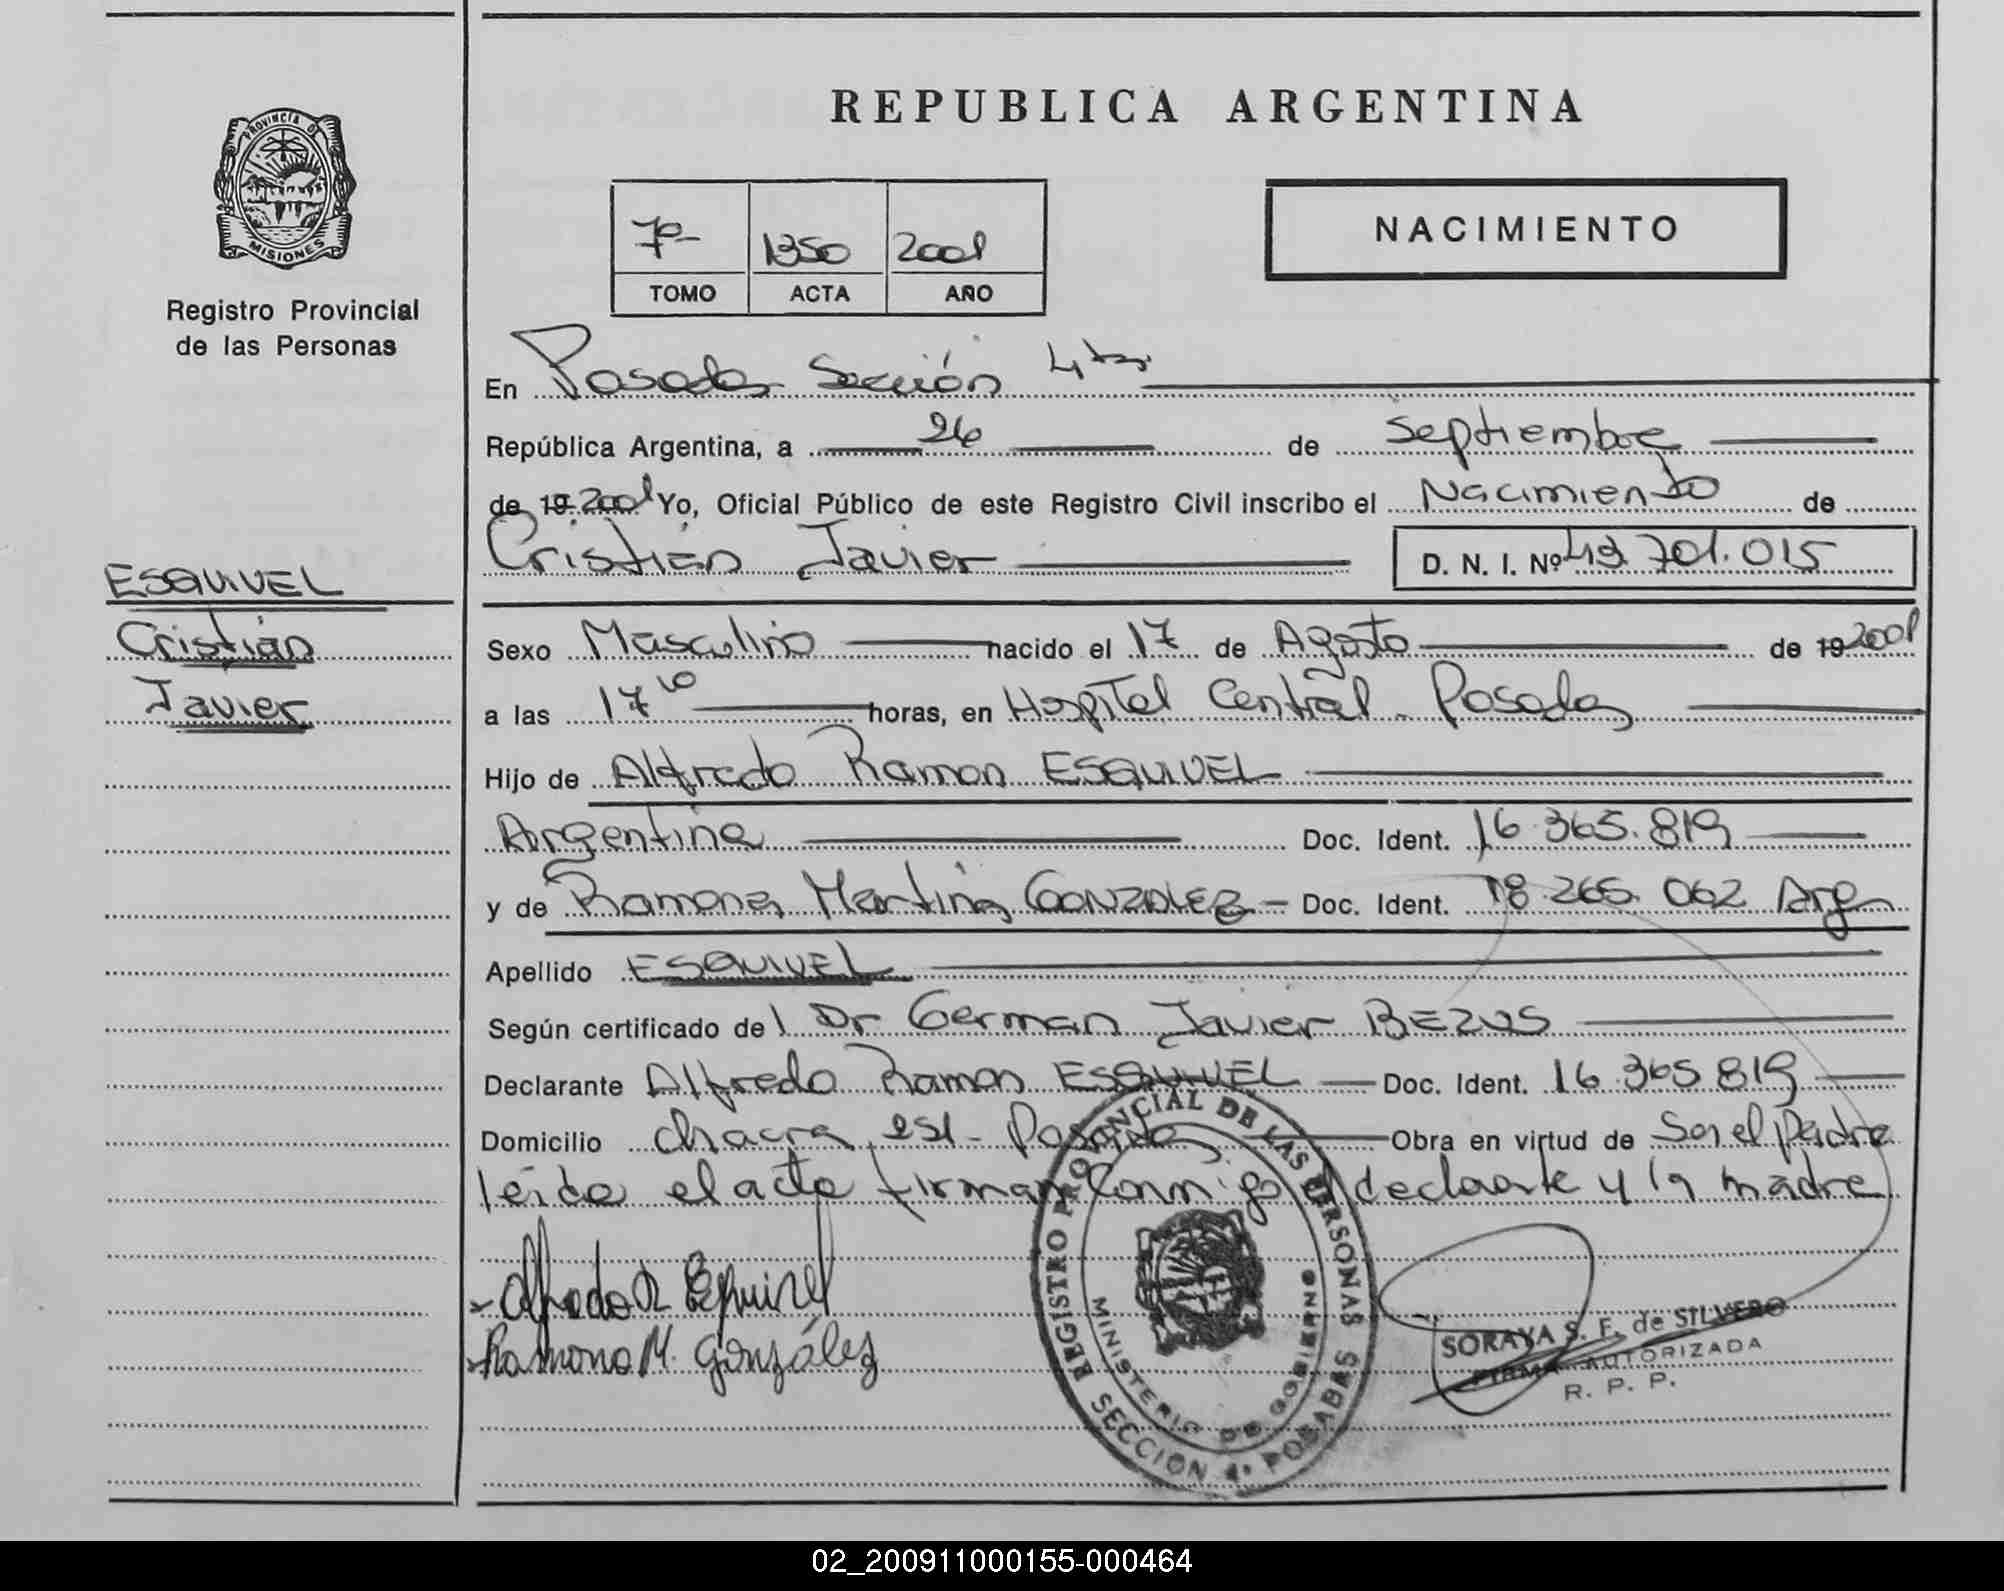 REPUBLICA ARGENTINA
PROVINCIA DE
MISIONES
Registro Provincial
de las Personas
7º
1350
2001
TOMO
ACTA
AÑO
NACIMIENTO
En Posadas Sección 4ta
República Argentina, a 26 de septiembre
de 19 2001 Yo, Oficial Público de este Registro Civil inscribo el Nacimiento de
Cristián Javier D. N. I. Nº 43.701.015
ESQUIVEL
Cristián
Javier
Sexo Masculino nacido el 17 de Agosto de 19 2001
a las 17 10 horas, en Hospital Central Posadas
Hijo de Alfredo Ramon ESQUIVEL
Argentina Doc. Ident. 16.365.819
y de Ramona Martina GONZALEZ - Doc. Ident. 18.265.062 Arg
Apellido ESQUIVEL
Según certificado del Dr German Javier BEZUS
Declarante Alfredo Ramon ESQUIVEL Doc. Ident. 16.365.819
Domicilio chacra 251 - Posadas Obra en virtud de Ser el padre
leida el acta firman conmigo el declarante y la madre
Alfredo R Esquivel
Ramona M. González
REGISTRO PROVINCIAL DE LAS PERSONAS
MINISTERIO DE GOBIERNO
SECCION 4ª POSADAS
SORAYA S. F. de SILVERO
FIRMA AUTORIZADA
R. P. P.
02_200911000155-000464